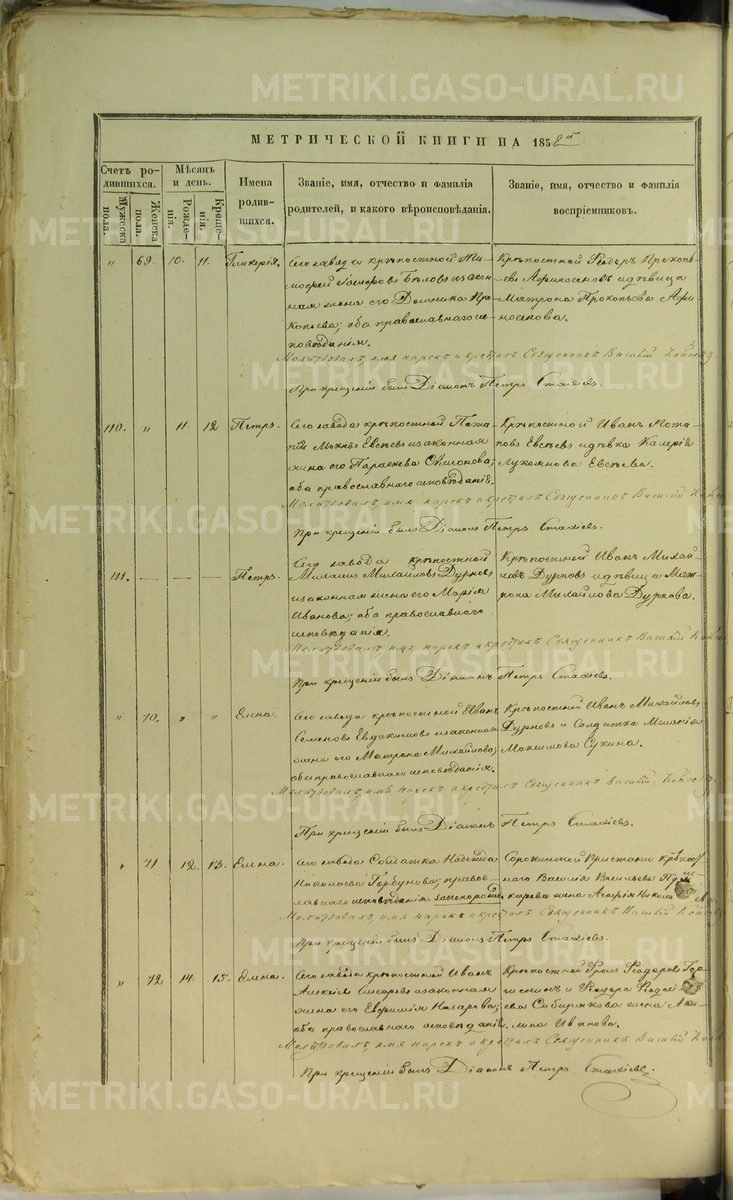 МЕТРИЧЕСКОЙ КНИГИ НА 1858й
Счетъ родившихся.
Мужеска пола.
Женска пола.
Мѣсяцъ и день.
Рожденія.
Крещенія.
Имена родившихся.
Званіе, имя, отчество и фамилія родителей, и какого вѣроисповѣданія.
Званіе, имя, отчество и фамилія воспріемниковъ.
" 69. 10. 11. Гликерія.
Сего завода крѣпостной Ти-
мофей Бѣловъ и закон-
ная жена его Домника Про-
копьева; оба православнаго ис-
повѣданія.
Крѣпостной Ѳедоръ Прокопь-
евъ и дѣвица
Матрона Прокопьева
Молитвовалъ, имя нарекъ и крестилъ Священникъ Василій
При крещеніи былъ Діаконъ Петръ Стахіевъ.
110. " 11. 12. Петръ.
Сего завода крѣпостной Пота-
пій Евсѣевъ и законная
жена его Параскева
оба православнаго исповѣданія.
Крѣпостной Иванъ Пота-
повъ Евсѣевъ и дѣвка Калерія
Евсѣева.
Молитвовалъ, имя нарекъ и крестилъ Священникъ Василій
При крещеніи былъ Діаконъ Петръ Стахіевъ.
111. — — — Петръ.
Сего завода крѣпостной
Михаилъ Михайловъ Дурновъ
и законная жена его Марія
Иванова; оба православнаго
исповѣданія.
Крѣпостной Иванъ Михай-
ловъ Дурновъ и дѣвица Мат-
рона Михайлова Дурнова.
Молитвовалъ, имя нарекъ и крестилъ Священникъ Василій
При крещеніи былъ Діаконъ Петръ Стахіевъ.
" 70. " " Елена.
Сего завода крѣпостной Иванъ
Семеновъ Евдокимовъ и законная
жена его Матрона Михайлова;
оба православнаго исповѣданія.
Крѣпостной Иванъ Михайловъ
Дурновъ и Солдатка Меланія
Максимова Сухина.
Молитвовалъ, имя нарекъ и крестилъ Священникъ Василій
При крещеніи былъ Діаконъ Петръ Стахіевъ.
" 71 12. 13. Елена.
Сего завода Солдатка Надежда
Николаева Горбунова; правос-
лавнаго исповѣданія.
Сорокинской Пристани
Василія Васильева
жена Агафія
Молитвовалъ, имя нарекъ и крестилъ Священникъ Василій
При крещеніи былъ Діаконъ Петръ Стахіевъ.
" 72 14. 15. Елена.
Сего завода крѣпостной Иванъ
Алексѣевъ и законная
жена его Евфимія Назарова;
оба православнаго исповѣданія.
Крѣпостной Ѳедоровъ Гор-
и Ѳедора
Сибирякова жена Аку-
лина Иванова.
Молитвовалъ, имя нарекъ и крестилъ Священникъ Василій
При крещеніи былъ Діаконъ Петръ Стахіевъ.
METRIKI.GASO-URAL.RU